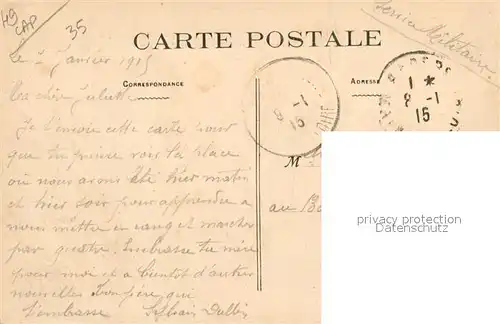 49
CAP
35
Service Militaire
CARTE POSTALE
Le Janvier 1915
CORRESPONDANCE
ADRESSE
Ma chère Juliette
Je t'envoie cette carte pour
que tu puisse voir la place
où nous avons été hier matin
et hier soir pour apprendre a
nous mettre en rang et marcher
par quatre. Embrasse ta mère
pour moi et a bientot d'autres
nouvelles Ton père qui
t'embrasse Sylvain
8 -1
15
1 *
8 -1
15
M
au
privacy protection
Datenschutz